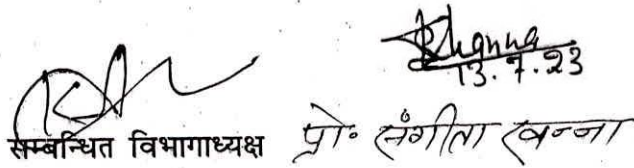 Khanna
13.7.23
सम्बन्धित विभागाध्यक्ष प्रो॰ संगीता खन्ना